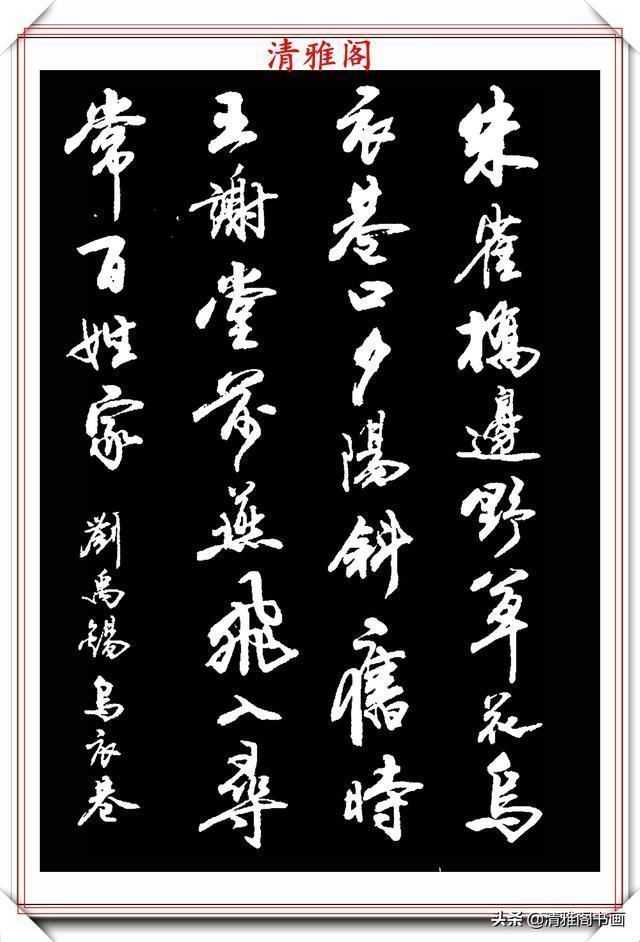 清雅阁
朱雀橋邊野草花烏
衣巷口夕陽斜舊時
王謝堂前燕飛入尋
常百姓家
劉禹錫烏衣巷
头条 @清雅阁书画